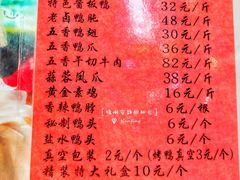 特色酱板鸭 32元/斤
老卤鸭肫 48元/斤
五香鸭翅 30元/斤
五香鸭爪 36元/斤
五香干切牛肉 82元/斤
蒜蓉凤爪 38元/斤
黄金素鸡 16元/斤
香辣鸭脖 6元/根
秘制鸭头 6元/个
盐水鸭头 6元/个
真空包装 2元/个(烤鸭真空3元/个)
精装特大礼盒10元/个